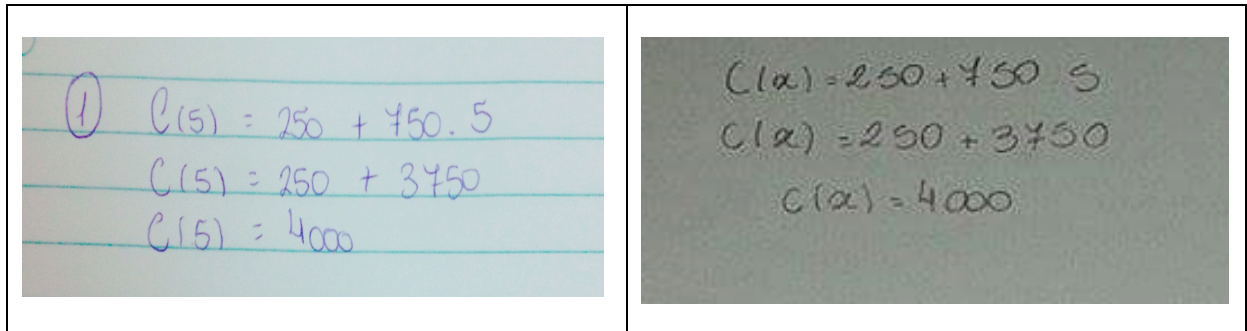 1 C(5) = 250 + 750. 5
C(5) = 250 + 3750
C(5) = 4000
C(x) = 250 + 750 5
C(x) = 250 + 3750
C(x) = 4000